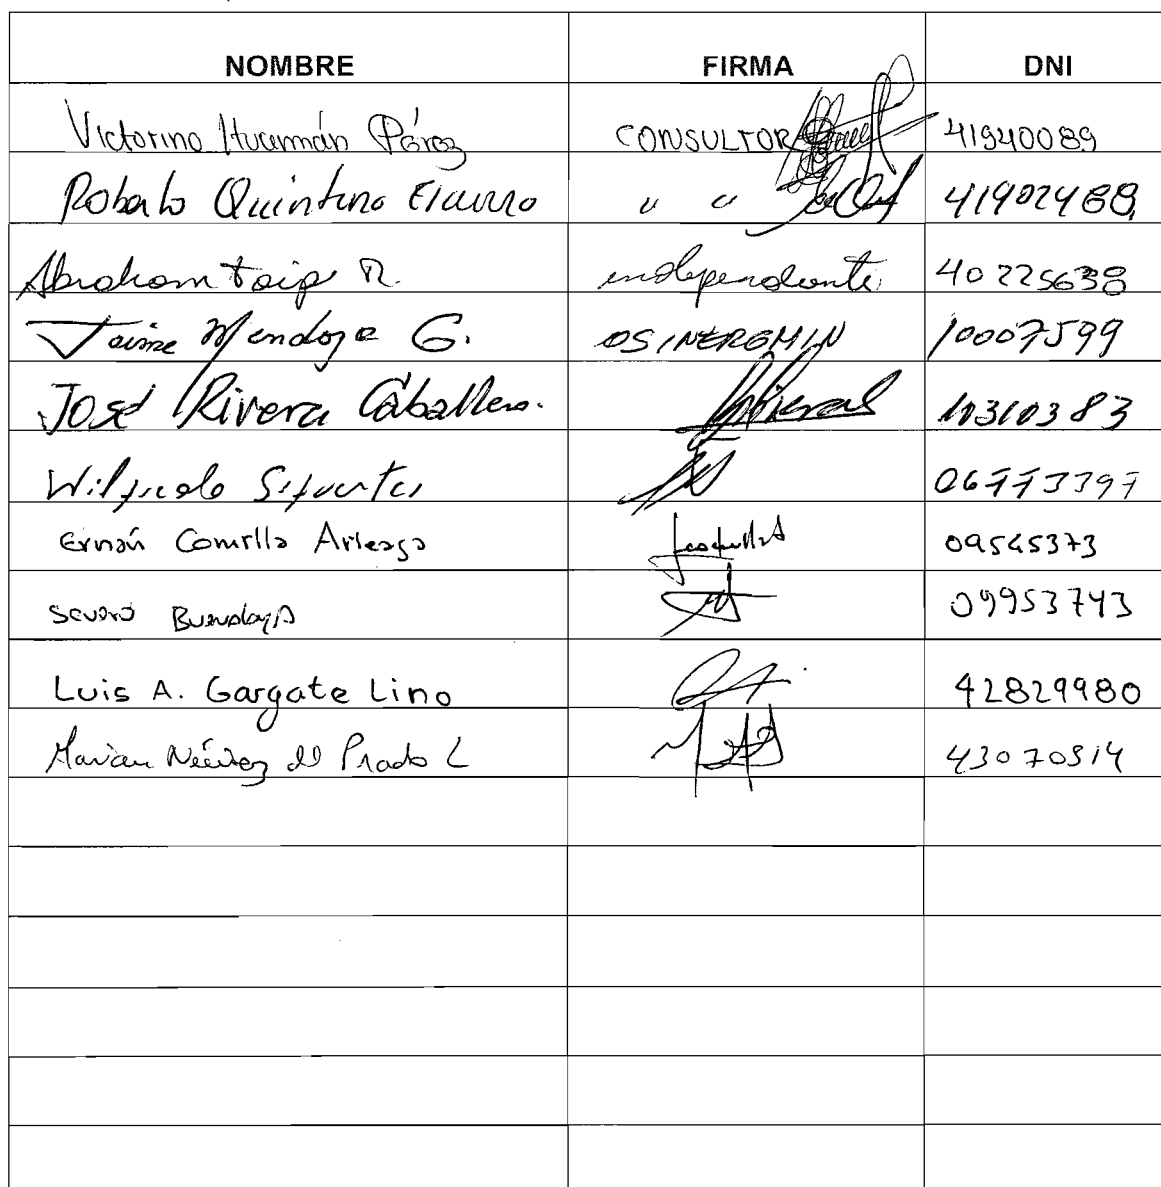 NOMBRE FIRMA DNI
Victorino Huamán Pérez CONSULTOR 41940089
Roberto Quintino " " 41902468
Abraham Taipe R. independiente 40225638
Jaime Mendoza G. OSINERGMIN 10007599
José Rivera Caballero. 10310383
Wilfredo Sifuentes 06773397
Ernán Arteaga 09545373
Severo Buendía 09953743
Luis A. Gargate Lino 42829980
Marian Núñez del Prado L 43070514